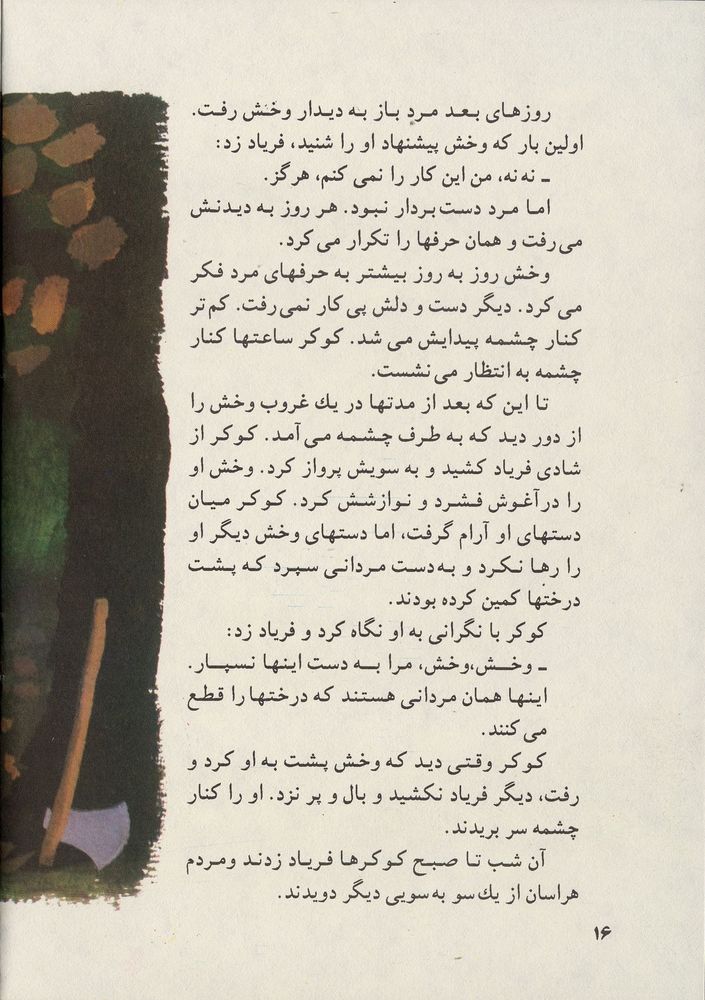 روزهای بعد مرد باز به دیدار وخش رفت.
اولین بار که وخش پیشنهاد او را شنید، فریاد زد:
ـ نه نه، من این کار را نمی کنم، هرگز.
اما مرد دست بردار نبود. هر روز به دیدنش
می رفت و همان حرفها را تکرار می کرد.
وخش روز به روز بیشتر به حرفهای مرد فکر
می کرد. دیگر دست و دلش پی کار نمی رفت. کم تر
کنار چشمه پیدایش می شد. کوکر ساعتها کنار
چشمه به انتظار می نشست.
تا این که بعد از مدتها در یك غروب وخش را
از دور دید که به طرف چشمه می آمد. کوکر از
شادی فریاد کشید و به سویش پرواز کرد. وخش او
را درآغوش فشرد و نوازشش کرد. کوکر میان
دستهای او آرام گرفت، اما دستهای وخش دیگر او
را رها نکرد و به دست مردانی سپرد که پشت
درختها کمین کرده بودند.
کوکر با نگرانی به او نگاه کرد و فریاد زد:
ـ وخش،وخش، مرا به دست اینها نسپار.
اینها همان مردانی هستند که درختها را قطع
می کنند.
کوکر وقتی دید که وخش پشت به او کرد و
رفت، دیگر فریاد نکشید و بال و پر نزد. او را کنار
چشمه سر بریدند.
آن شب تا صبح کوکرها فریاد زدند ومردم
هراسان از یك سو به سویی دیگر دویدند.
۱۶